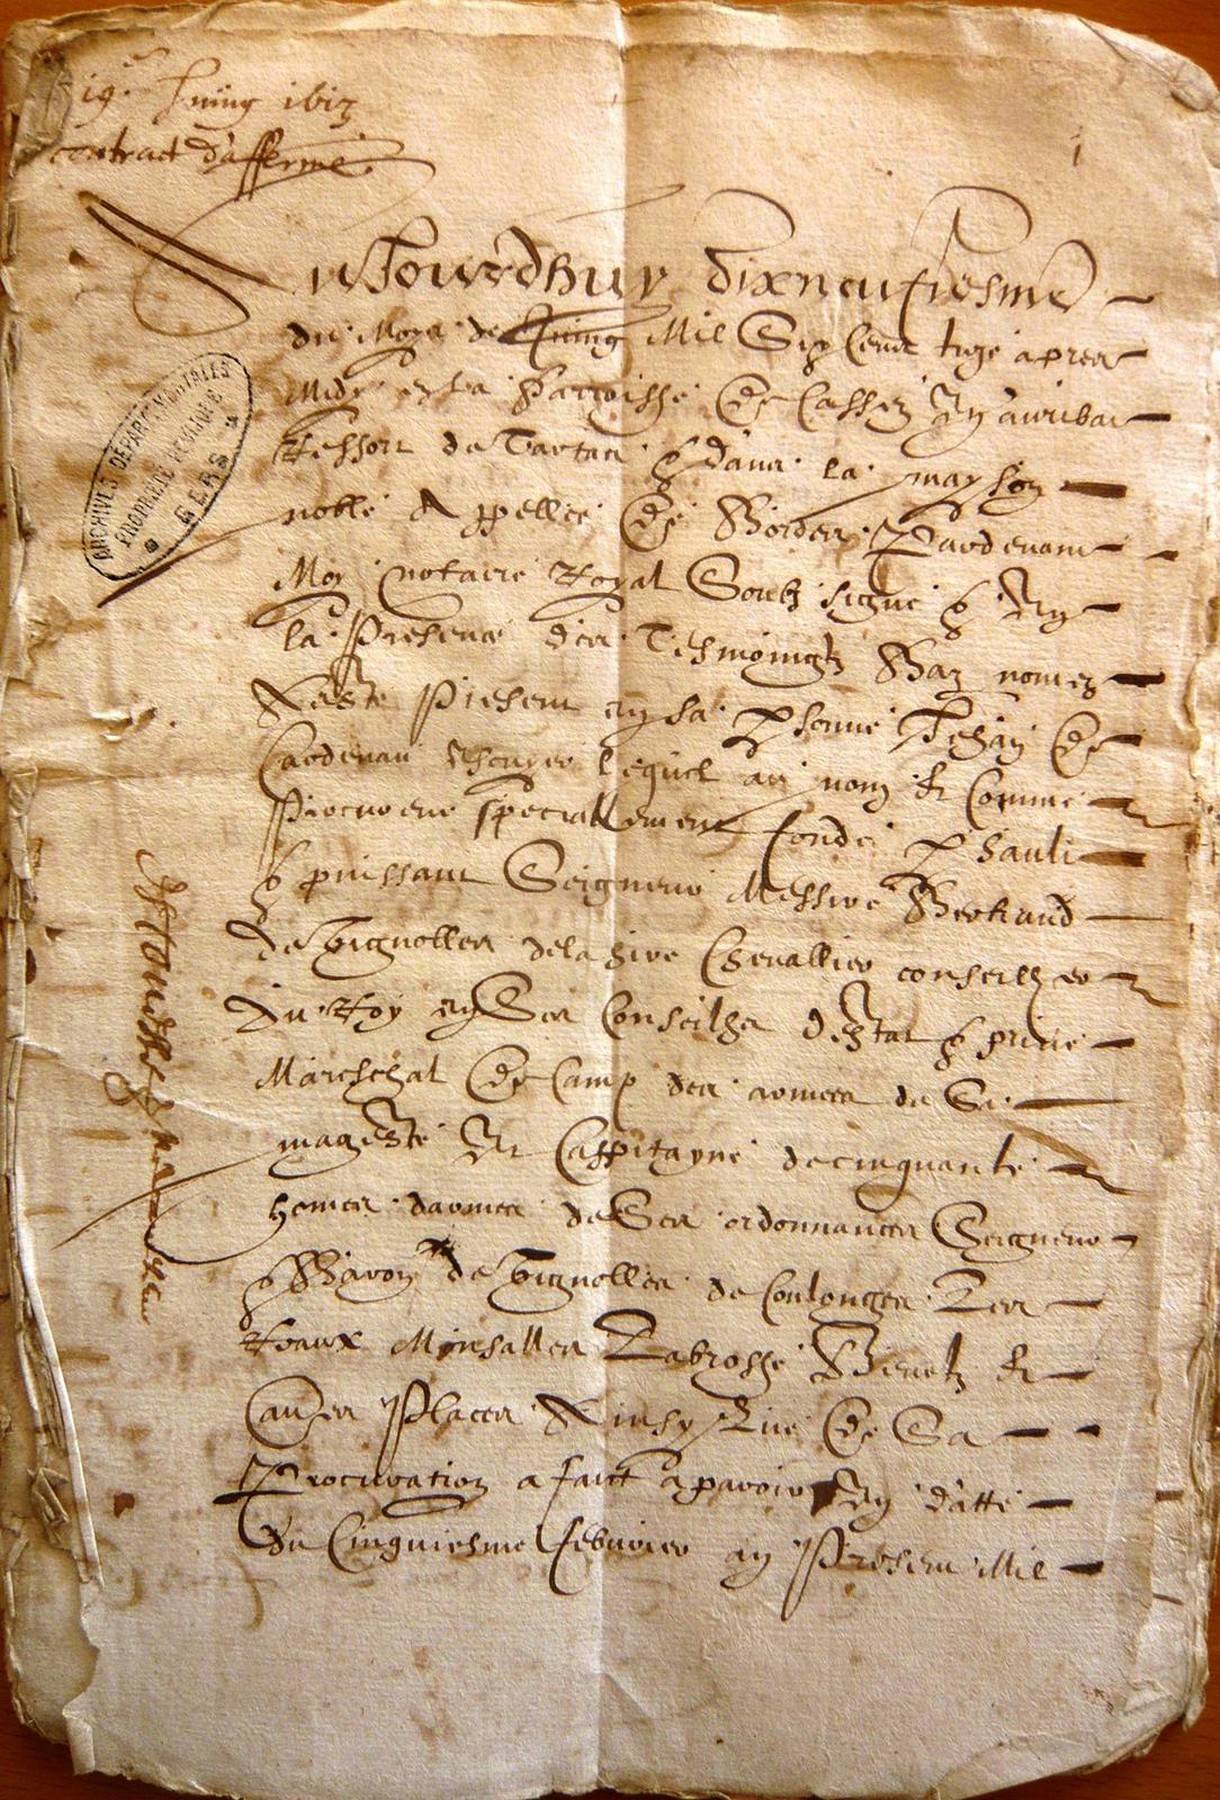 19e Juing 1613
contract d'afferme
1
Aujourdhuy dixneufiesme
du Moys de Juing Mil Six Cens treze apres
Midy en la Parroisse De Cassen En auribat
Ressort de Tartas & dans la mayson
noble Appellee De Bordes Pardevant
Moy notaire Royal Soubz signe & En
la Presence des Tesmoingtz Bas nomes
Este Present en sa psonne Jehan De
Cardenau Escuyer lequel au nom Et Comme
Procureur speciallement fonde p hault
& puissant Seigneur Messire Bertrand
De Vignolles delahire Chevallier conseilher
Du Roy en Ses Conseilhs d'Estat & prive
Mareschal De Camp des armees de Sa
mageste Et Cappitayne de cinquante
homes darmes de Ses ordonnances Seigneur
& Baron de Vignolles de Coulonges Les
Reaux
Places Ainsy Que De Sa
Procuration a faict aparoir En datte
Du Cinquiesme febvrier an Present Mil
ARCHIVES DEPARTEMENTALES
PROPRIETE PUBLIQUE
GERS